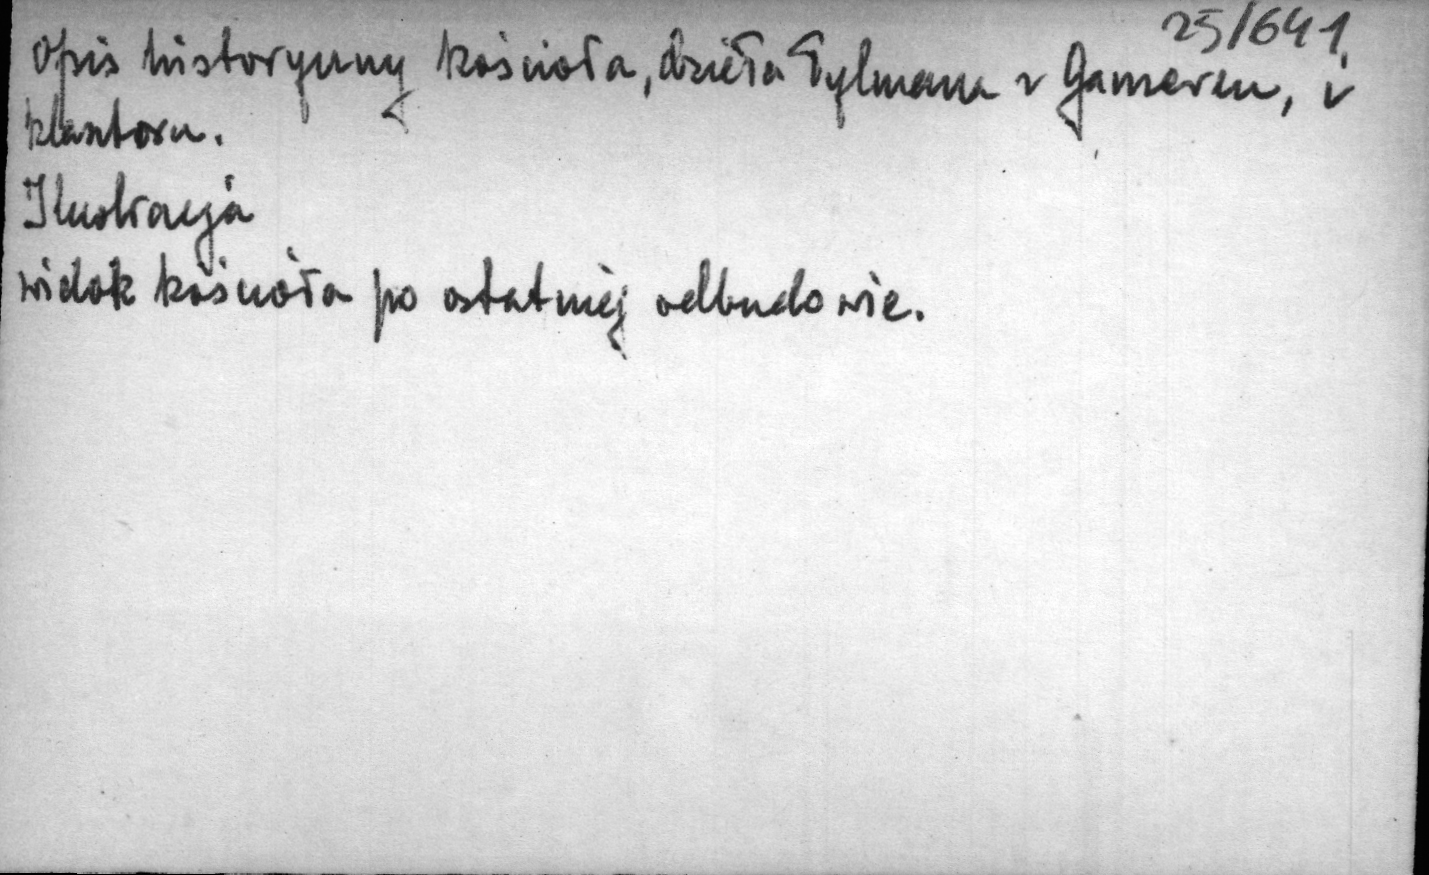 25/641
Opis historyczny kościoła, dzieła Tylmana z Gameren, i
klasztoru.
Ilustracja
widok kościoła po ostatniej odbudowie.